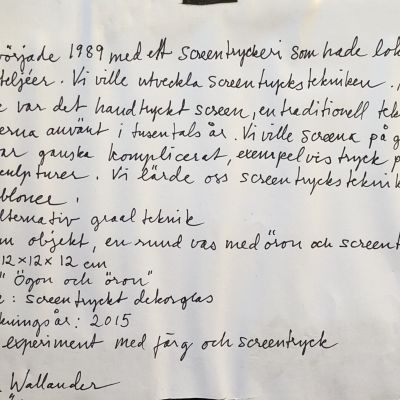 började 1989 med ett screentryckeri som hade lok
teljéer. Vi ville utveckla screentryckstekniken.
var det handtryckt screen, en traditionell tek
erna använt i tusentals år. Vi ville screena på g
ar ganska komplicerat, exempelvis tryck p
sculpturer. Vi lärde oss screentrycksteknik
bloner.
lternativ graalteknik
m objekt, en rund vas med öron och screent
12×12×12 cm
"Ögon och öron"
: screentryckt dekorglas
kningsår: 2015
experiment med färg och screentryck
Wallander